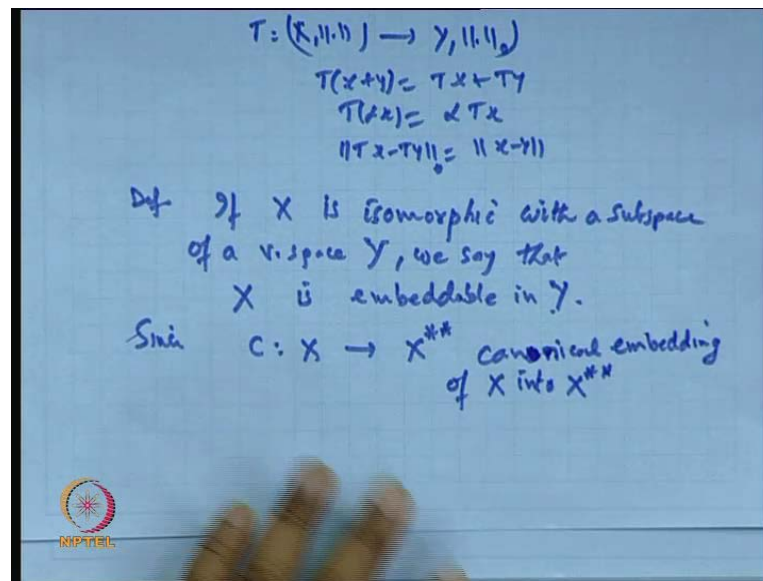 T: (X, ||.||) → Y, ||.||₀)
T(x+y) = Tx + Ty
T(αx) = αTx
||Tx-Ty||₀ = ||x-y||
Def If X is isomorphic with a subspace
of a v. space Y, we say that
X is embeddable in Y.
Sinc C: X → X** canonical embedding
of X into X**
NPTEL